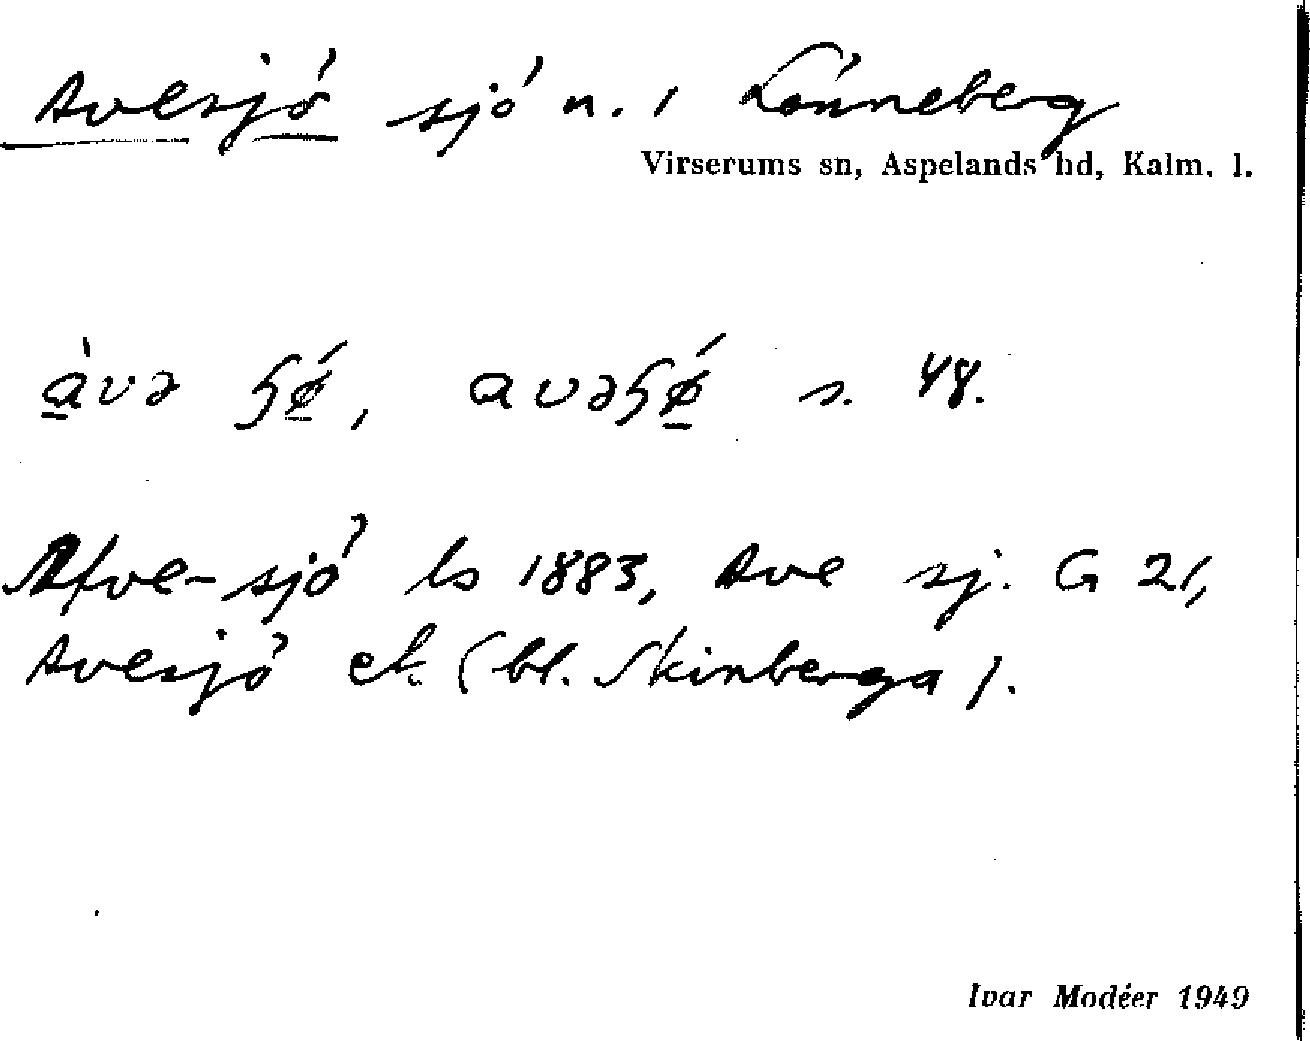 Avesjö sjö n. i Lönneberg
Virserums sn, Aspelands hd, Kalm. l.
s. 48.
Afve-sjö ls 1883, Ave sj. G 21,
Avesjö ek. (bl. Skinberga).
Ivar Modéer 1949